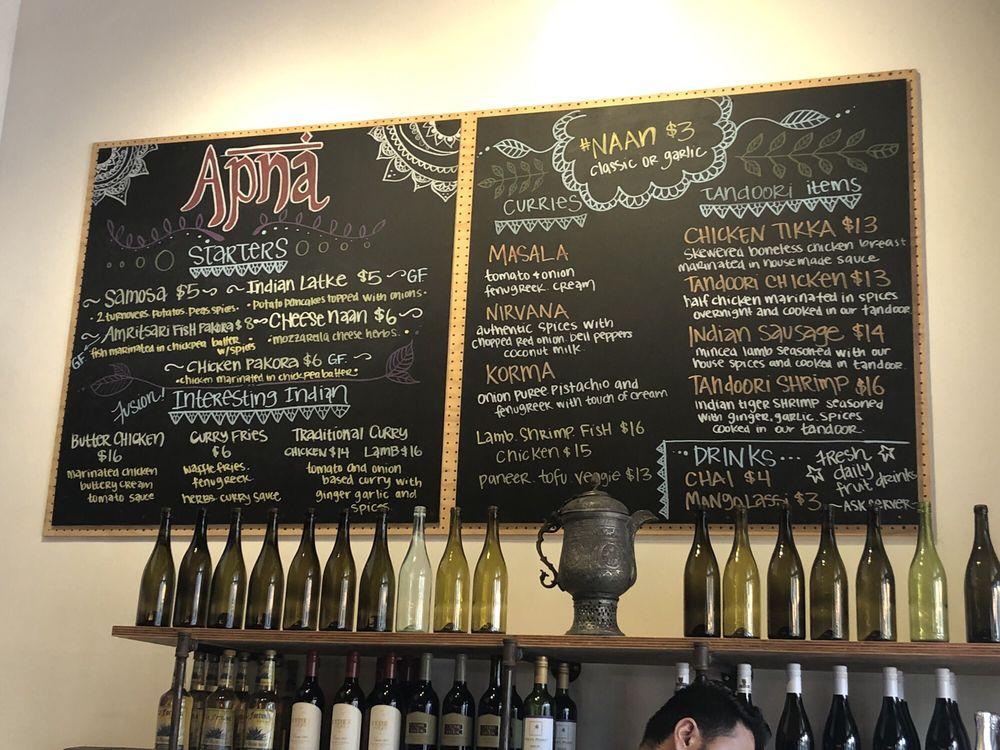 Apna
STARTERS
~ Samosa $5 ~
• 2 turnovers. potatos. peas. spices.
~ Indian Latke $5 ~ GF
• Potato pancakes topped with onions •
~ Amritsari Fish Pakora $8 ~
GF
fish marinated in chickpea batter
w/spices
Cheese naan $6 ~
• mozzarella cheese herbs. •
~ Chicken Pakora $6 GF. ~
• chicken marinated in chickpea batter •
fusion!
Interesting Indian
Butter Chicken
$16
marinated chicken
buttery cream
tomato sauce
Curry Fries
$6
waffle fries.
fenugreek.
herbs curry sauce
Traditional Curry
Chicken $14 Lamb $16
tomato and onion
based curry with
ginger garlic and
spices.
#NAAN $3
classic or garlic
CURRIES
MASALA
tomato + onion
fenugreek. cream
NIRVANA
authentic spices with
chopped red onion. bell peppers
coconut milk.
KORMA
onion puree pistachio and
fenugreek with touch of cream
Lamb. Shrimp. Fish $16
Chicken $15
paneer. tofu. veggie $13
Tandoori items
CHICKEN TIKKA $13
skewered boneless chicken breast
marinated in housemade sauce
TANDOORI CHICKEN $13
half chicken marinated in spices
overnight and cooked in our tandoor.
Indian Sausage $14
minced lamb seasoned with our
house spices and cooked in tandoor.
TANDOORI SHRIMP $16
indian tiger SHRIMP seasoned
with ginger, garlic. spices
cooked in our tandoor.
•• DRINKS •••
CHAI $4
Mango Lassi $3
fresh
daily
fruit drinks
~ASK SERVER~